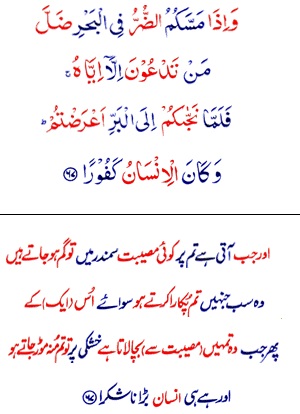 وَاِذَا مَسَّكُمُ الضُّرُّ فِى الْبَحْرِ ضَلَّ
مَنْ تَدْعُوْنَ اِلَّاۤ اِيَّاهُ ۚ
فَلَمَّا نَجّٰىكُمْ اِلَى الْبَرِّ اَعْرَضْتُمْ ؕ
وَكَانَ الْاِنْسَانُ كَفُوْرًا ﴿۶۷﴾
اور جب آتی ہے تم پر کوئی مصیبت سمندر میں تو گم ہو جاتے ہیں
وہ سب جنہیں تم پُکارا کرتے ہو سوائے اُس (ایک) کے
پھر جب وہ تمہیں (مصیبت سے) بچا لاتا ہے خشکی پر تو تم مُنہ موڑ جاتے ہو
اور ہے ہی انسان بڑا ناشکرا ﴿۶۷﴾